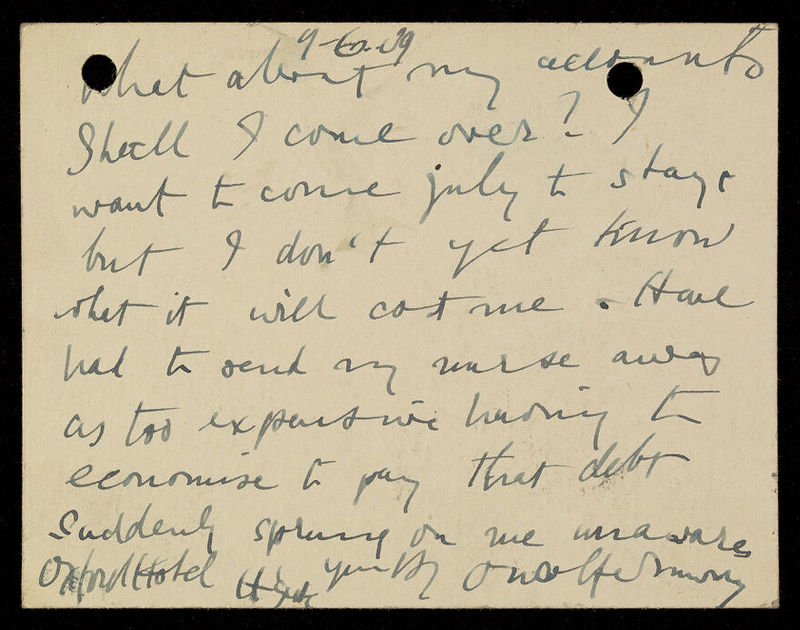 9-6-09
What about my accounts
Shall I come over? I
want to come july to stay
but I don't yet know
what it will cost me. Have
had to send my nurse away
as too expensive having to
economise to pay that debt
suddenly sprung on me unawares
Oxford Hotel